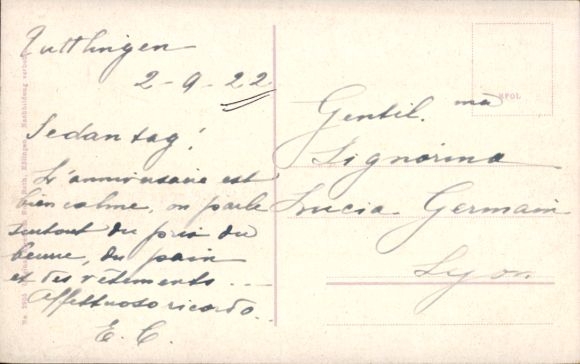 Tuttlingen
2-9-22
Sedantag!
L'anniversaire est
bien calme, on parle
surtout du prix du
beurre, du pain
et des vêtements...
Affettuoso ricordo.
E. C.
Gentil.ma
Signorina
Lucia Germain
Lyon